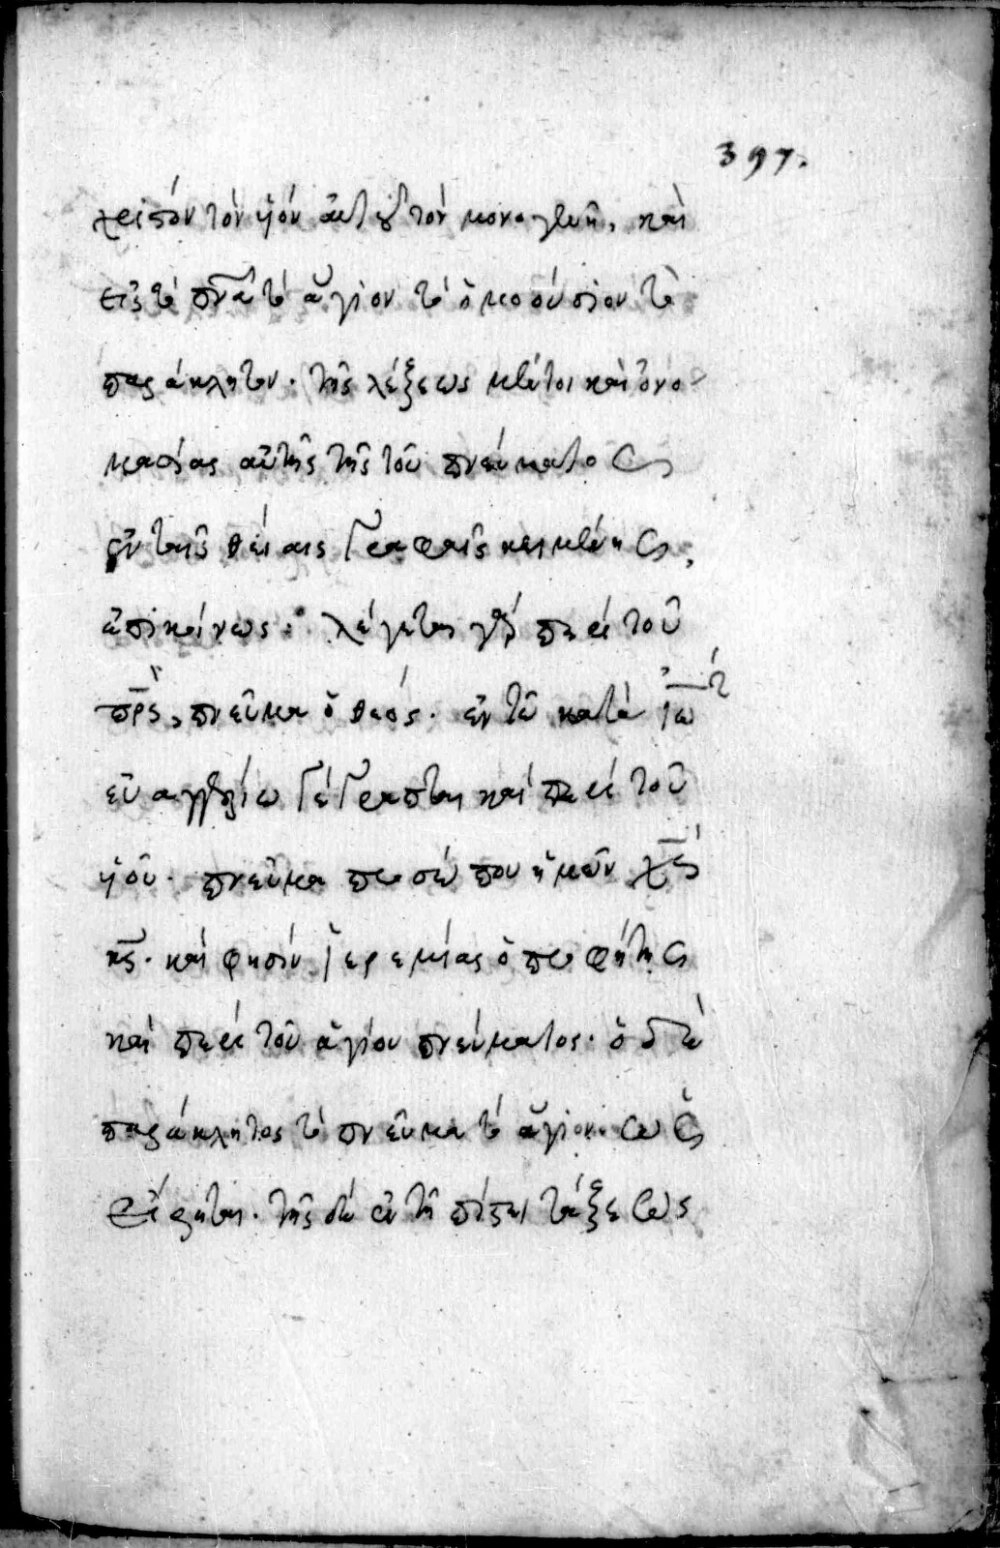 397.
χριστὸν τὸν ὑιὸν αὐτοῦ τὸν μονογενῆ, καὶ
εἰς τὸ πνᾶ τὸ ἅγιον τὸ ὁμοούσιον τὸ
παράκλητον. τῆς λέξεως μέντοι καὶ ὀνο
μασίας αὐτῆς τῆς τοῦ πνεύματος
ἐν ταῖς θείαις γραφαῖς κειμένης,
ἐπικοίνως. λέγεται γὰρ περὶ τοῦ
πρς, πνεῦμα ὁ θεός. ἐν τῶ κατὰ ἰω
εὐαγγελίω γέγραπται καὶ περὶ τοῦ
ὑιοῦ. πνεῦμα προσώπου ἡμῶν χς
κς. καὶ φησὶν ἱερεμίας ὁ προφήτης
καὶ περὶ τοῦ ἁγίου πνεύματος. ὁ δὲ
παράκλητος τὸ πνεῦμα τὸ ἅγιον. ὡς
εἴρηται. τῆς δὲ ἐν τῆ πίστει τάξεως